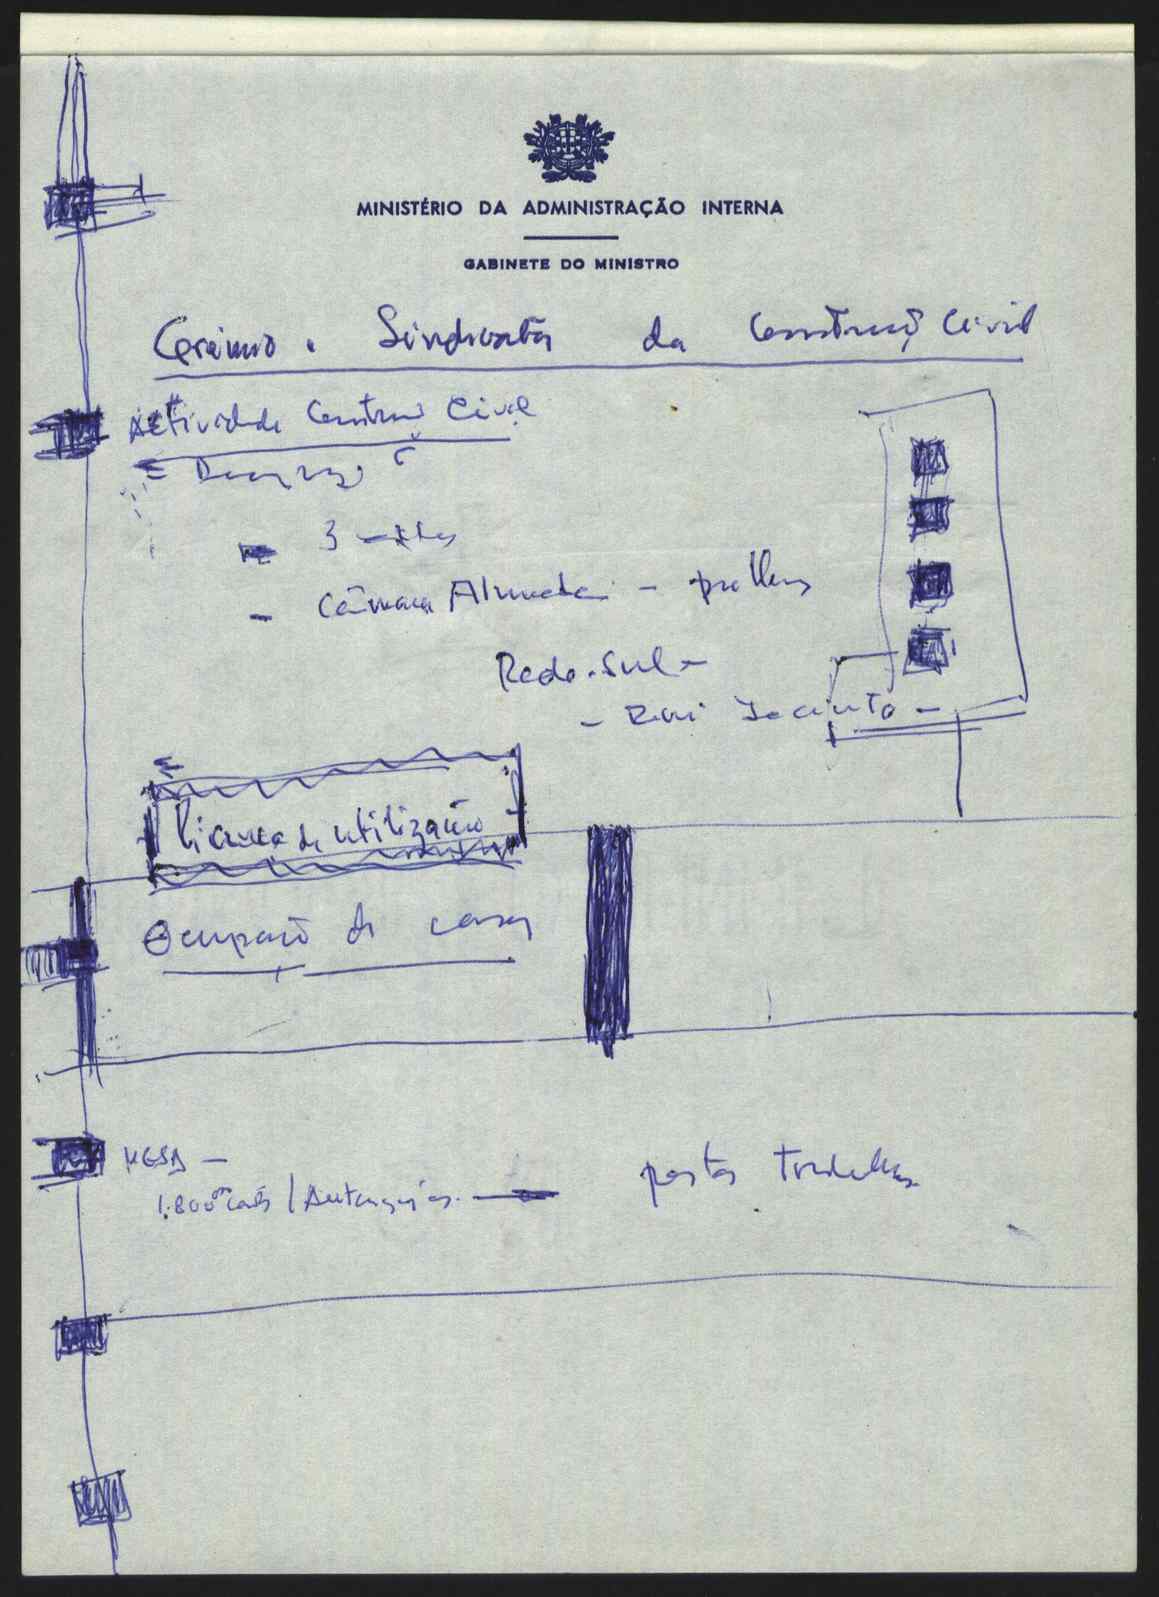 MINISTÉRIO DA ADMINISTRAÇÃO INTERNA
GABINETE DO MINISTRO
Grémio. Sindicatos da Construç Civil
Actividade Construç Civil
-
- 3
- Câmara Almada -
Rádio. Sul -
- Rui Jacinto -
Licença de utilização
Ocupação de casas
MESA -
1.800 /
postos trabalhos